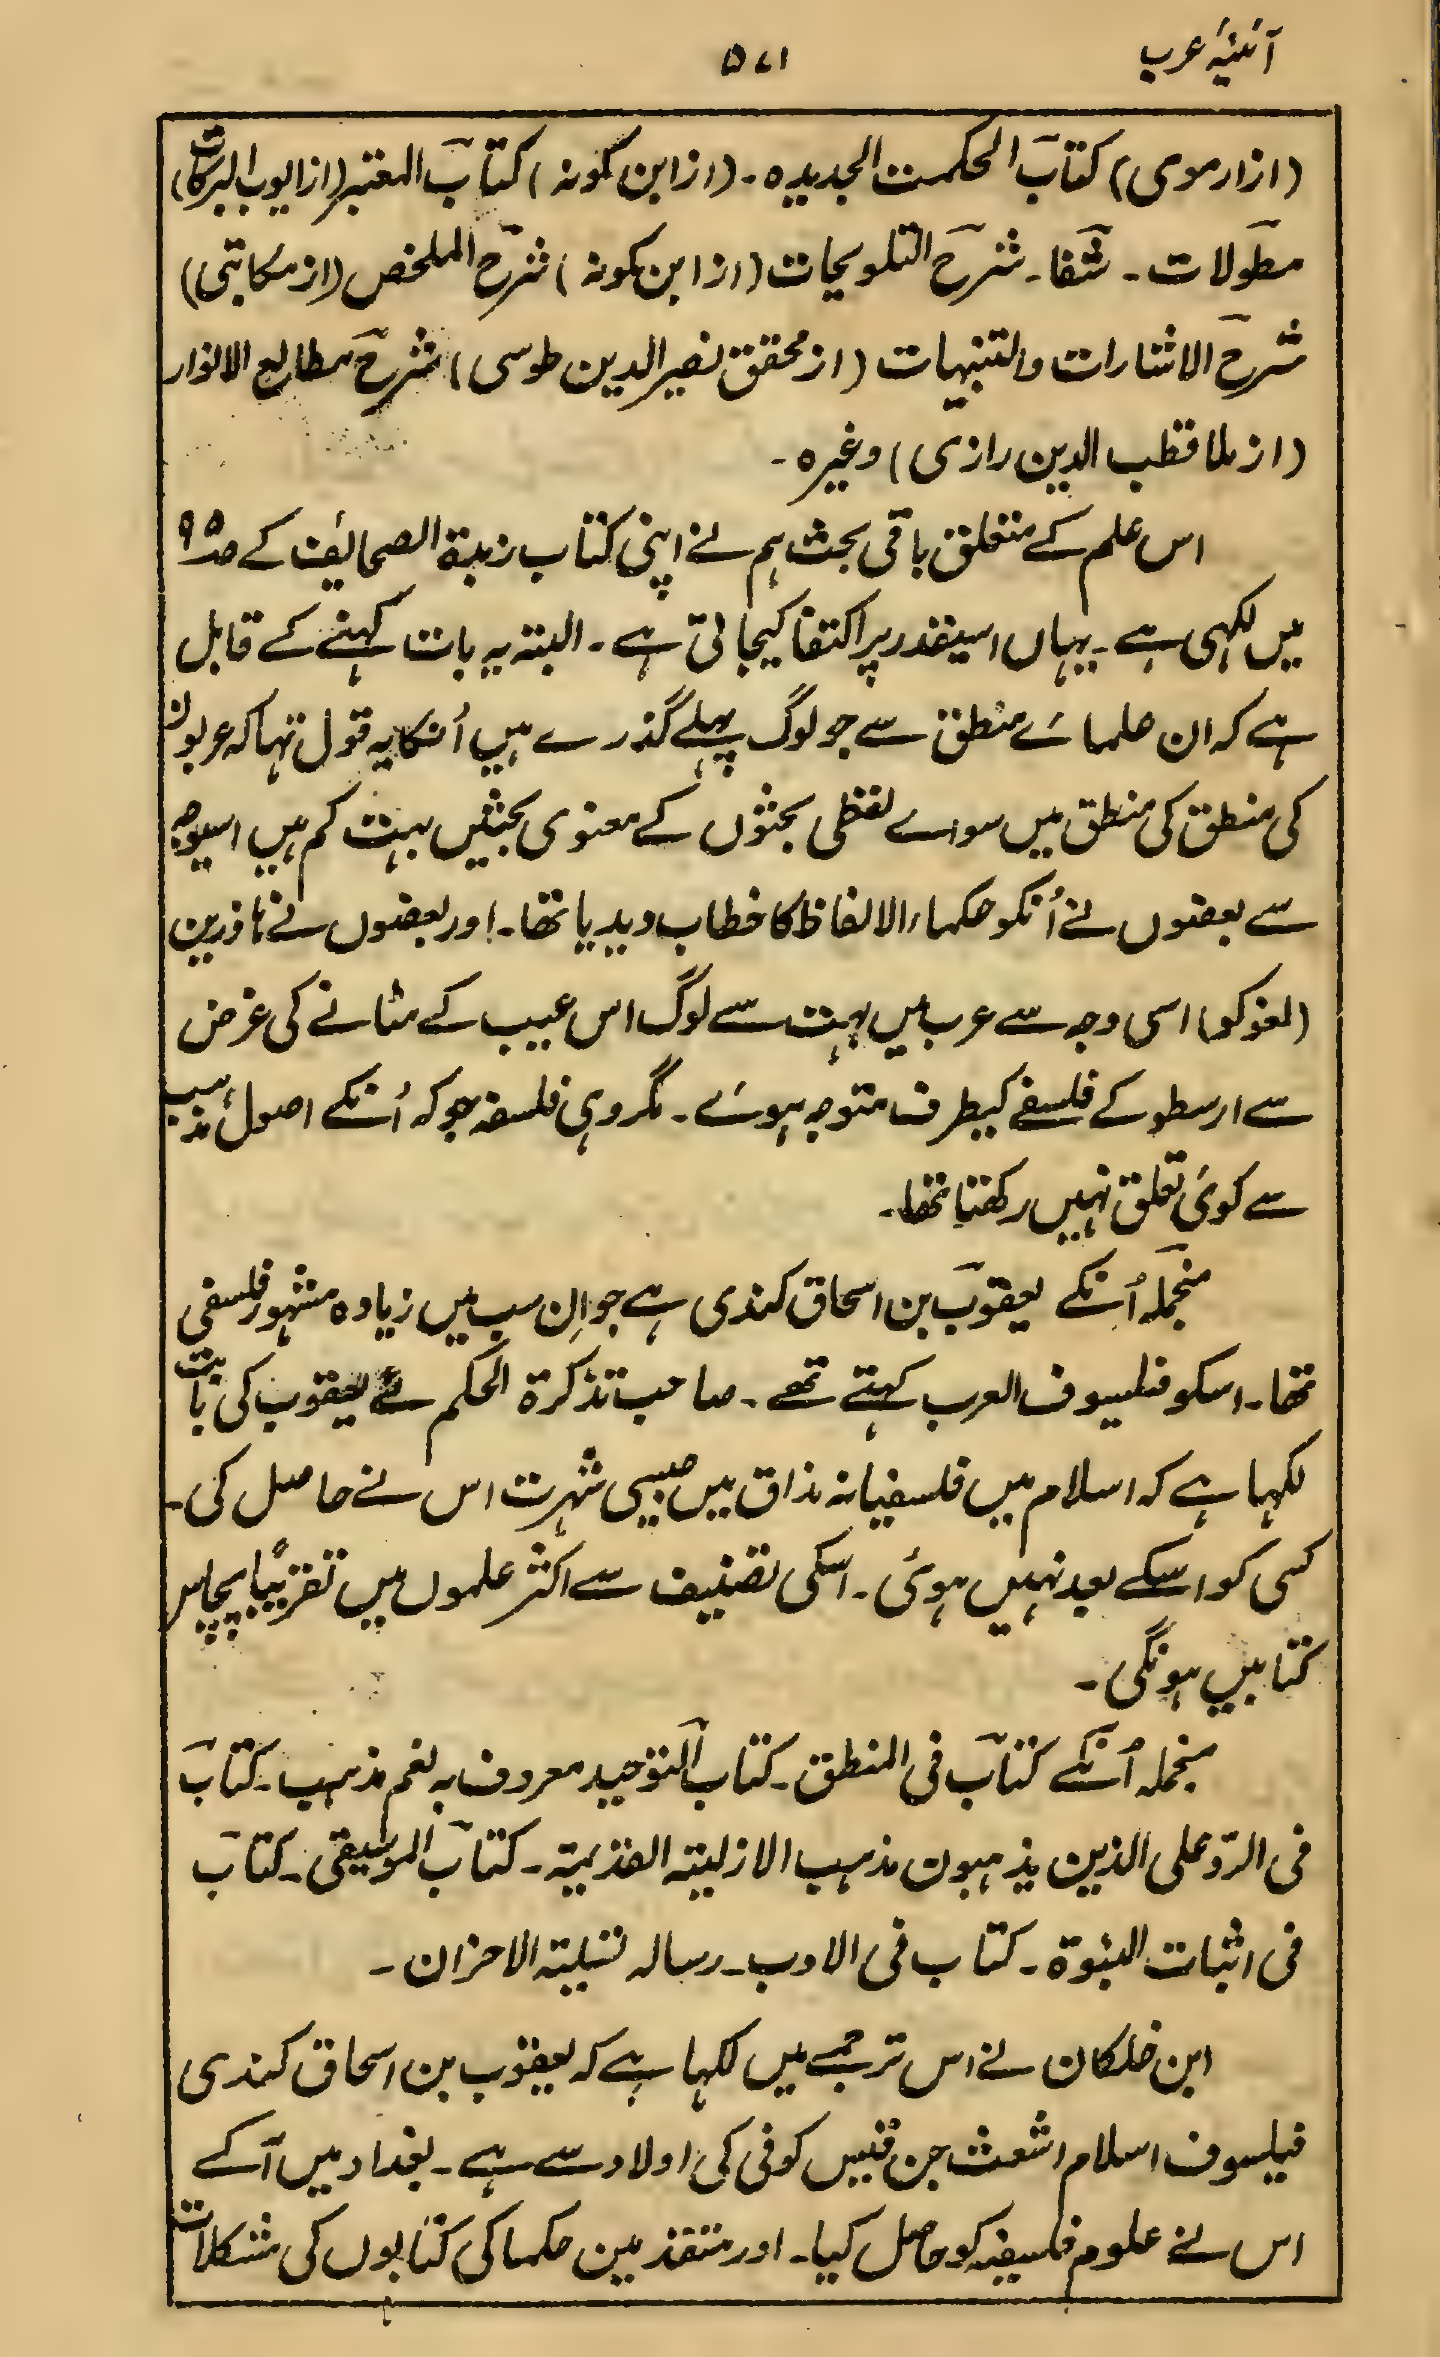 آئینۂ عرب
۵۷۱
(از ارموی) کتاب الحکمت الجدیدہ۔ (از ابن کمونہ) کتاب المعتبر (از ایوب البرکات)
مطولات۔ شفا۔ شرح التلویحات (از ابن کمونہ) شرح الملخص (از مکابتی)
شرح الاشارات والتنبیہات (از محقق نصیر الدین طوسی) شرح مطالع الانوار
(از ملا قطب الدین رازی) وغیرہ۔
اس علم کے متعلق باقی بحث ہم نے اپنی کتاب زبدۃ الصحائف کے صہ ۹۵
میں لکہی ہے۔ یہاں اسیقدر پر اکتفا کیجاتی ہے۔ البتہ یہ بات کہنے کے قابل
ہے کہ ان علمائے منطق سے جو لوگ پہلے گذرے ہیں اُنکا یہ قول تہا کہ عربوں
کی منطق کی منطق میں سوائے لفظی بحثوں کے معنوی بحثیں بہت کم ہیں اسیوجہ
سے بعضوں نے اُنکو حکماء الالفاظ کا خطاب دیدیا تھا۔ اور بعضوں نے ہاذرین
(لغوگو) اسی وجہ سے عرب میں بہت سے لوگ اس عیب کے مٹانے کی غرض
سے ارسطو کے فلسفے کیطرف متوجہ ہوئے۔ مگر وہی فلسفہ جو کہ اُنکے اصول مذہب
سے کوئی تعلق نہیں رکھتا تھا۔
منجملہ اُنکے یعقوب بن اسحاق کندی ہے جو اِن سب میں زیادہ مشہور فلسفی
تھا۔ اسکو فیلسوف العرب کہتے تھے۔ صاحب تذکرۃ الحکم نے یعقوب کی بابت
لکہا ہے کہ اسلام میں فلسفیانہ مذاق میں جیسی شہرت اس نے حاصل کی۔
کسی کو اسکے بعد نہیں ہوئی۔ اسکی تصنیف سے اکثر علموں میں تقریباً پچاس
کتابیں ہونگی۔
منجملہ اُنکے کتاب فی المنطق۔ کتاب التوحید معروف بہ لفم مذہب۔ کتاب
فی الرد علی الذین یذہبون مذہب الازلیتہ القدیمتہ۔ کتاب الموسیقی۔ کتاب
فی اثبات النبوۃ۔ کتاب فی الادب۔ رسالہ تسلیتہ الاحزان۔
ابن خلکان نے اس ترجمے میں لکہا ہے کہ یعقوب بن اسحاق کندی
فیلسوف اسلام اشعث بن قیس کوفی کی اولاد سے ہے۔ بغداد میں آکے
اس نے علوم فلسفیہ کو حاصل کیا۔ اور متقدمین حکما کی کتابوں کی مشکلات